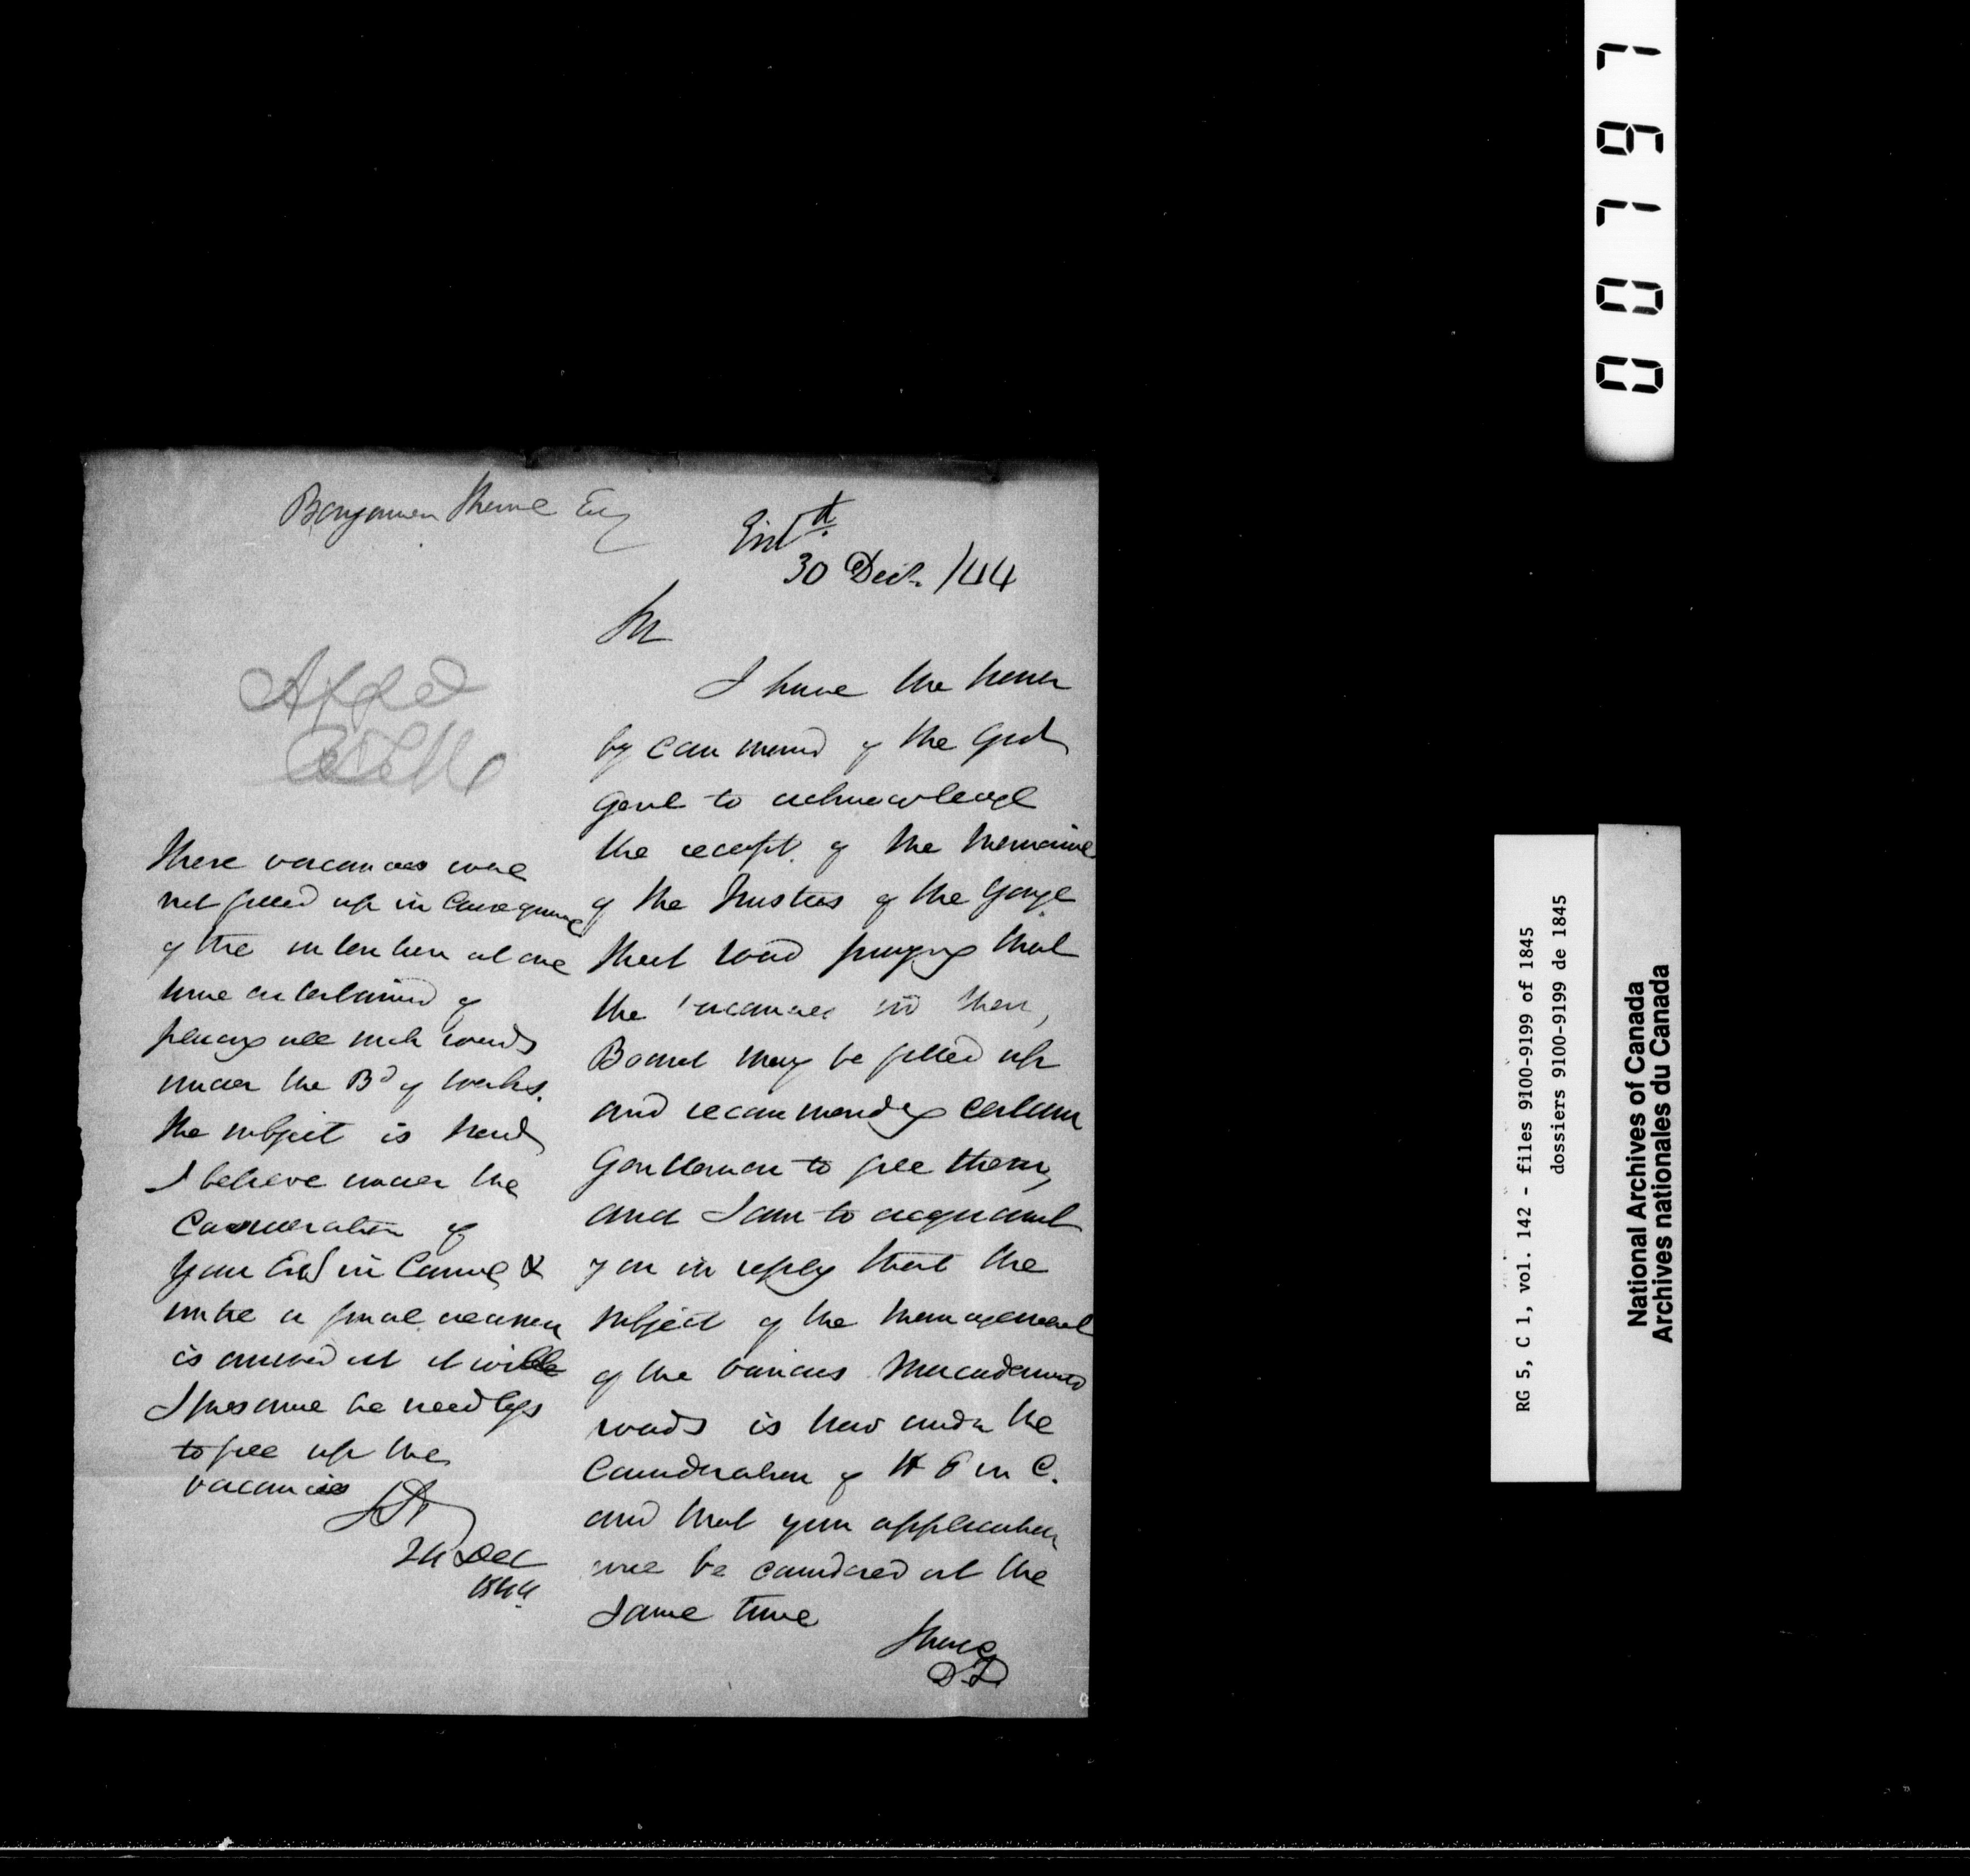 Benjamin Thorne Esq
Ent d.
30 Decr. /44
Sir
I have the honor
by command of the Govr
Genl to acknowledge
the receipt of the Memorial
of the Trustees of the Yonge
Street road praying that
the vacancies in their
Board may be filled up
and recommending certain
Gentlemen to fill them,
and I am to acquaint
you in reply that the
subject of the management
of the various Macadamized
roads is now under the
Consideration of H E in C.
and that your application
will be considered at the
same time
DD
Appd
CTM
These vacancies were
not filled up in consequence
of the intention at one
time entertained of
placing all such roads
under the Bd of Works.
The subject is now
I believe under the
Consideration of
Your Exy in Council &
until a final decision
is arrived at it will
I presume be needless
to fill up the
vacancies
24 Dec
1844
00767
RG 5, C 1, vol. 142 - files 9100-9199 of 1845
dossiers 9100-9199 de 1845
National Archives of Canada
Archives nationales du Canada